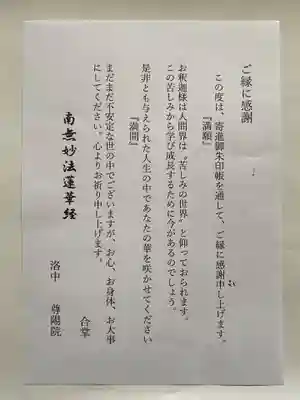 ご縁に感謝
この度は、寄進御朱印帳を通して、ご縁に感謝申し上げます。
『満願』
お釈迦様は人間界は〝苦しみの世界〟と仰っておられます。
この苦しみから学び成長するために今があるのでしょう。
是非とも与えられた人生の中であなたの華を咲かせてください
『満開』
まだまだ不安定な世の中でございますが、お心、お身体、お大事
にしてください。心よりお祈り申し上げます。
合掌
南無妙法蓮華経
洛中　尊陽院